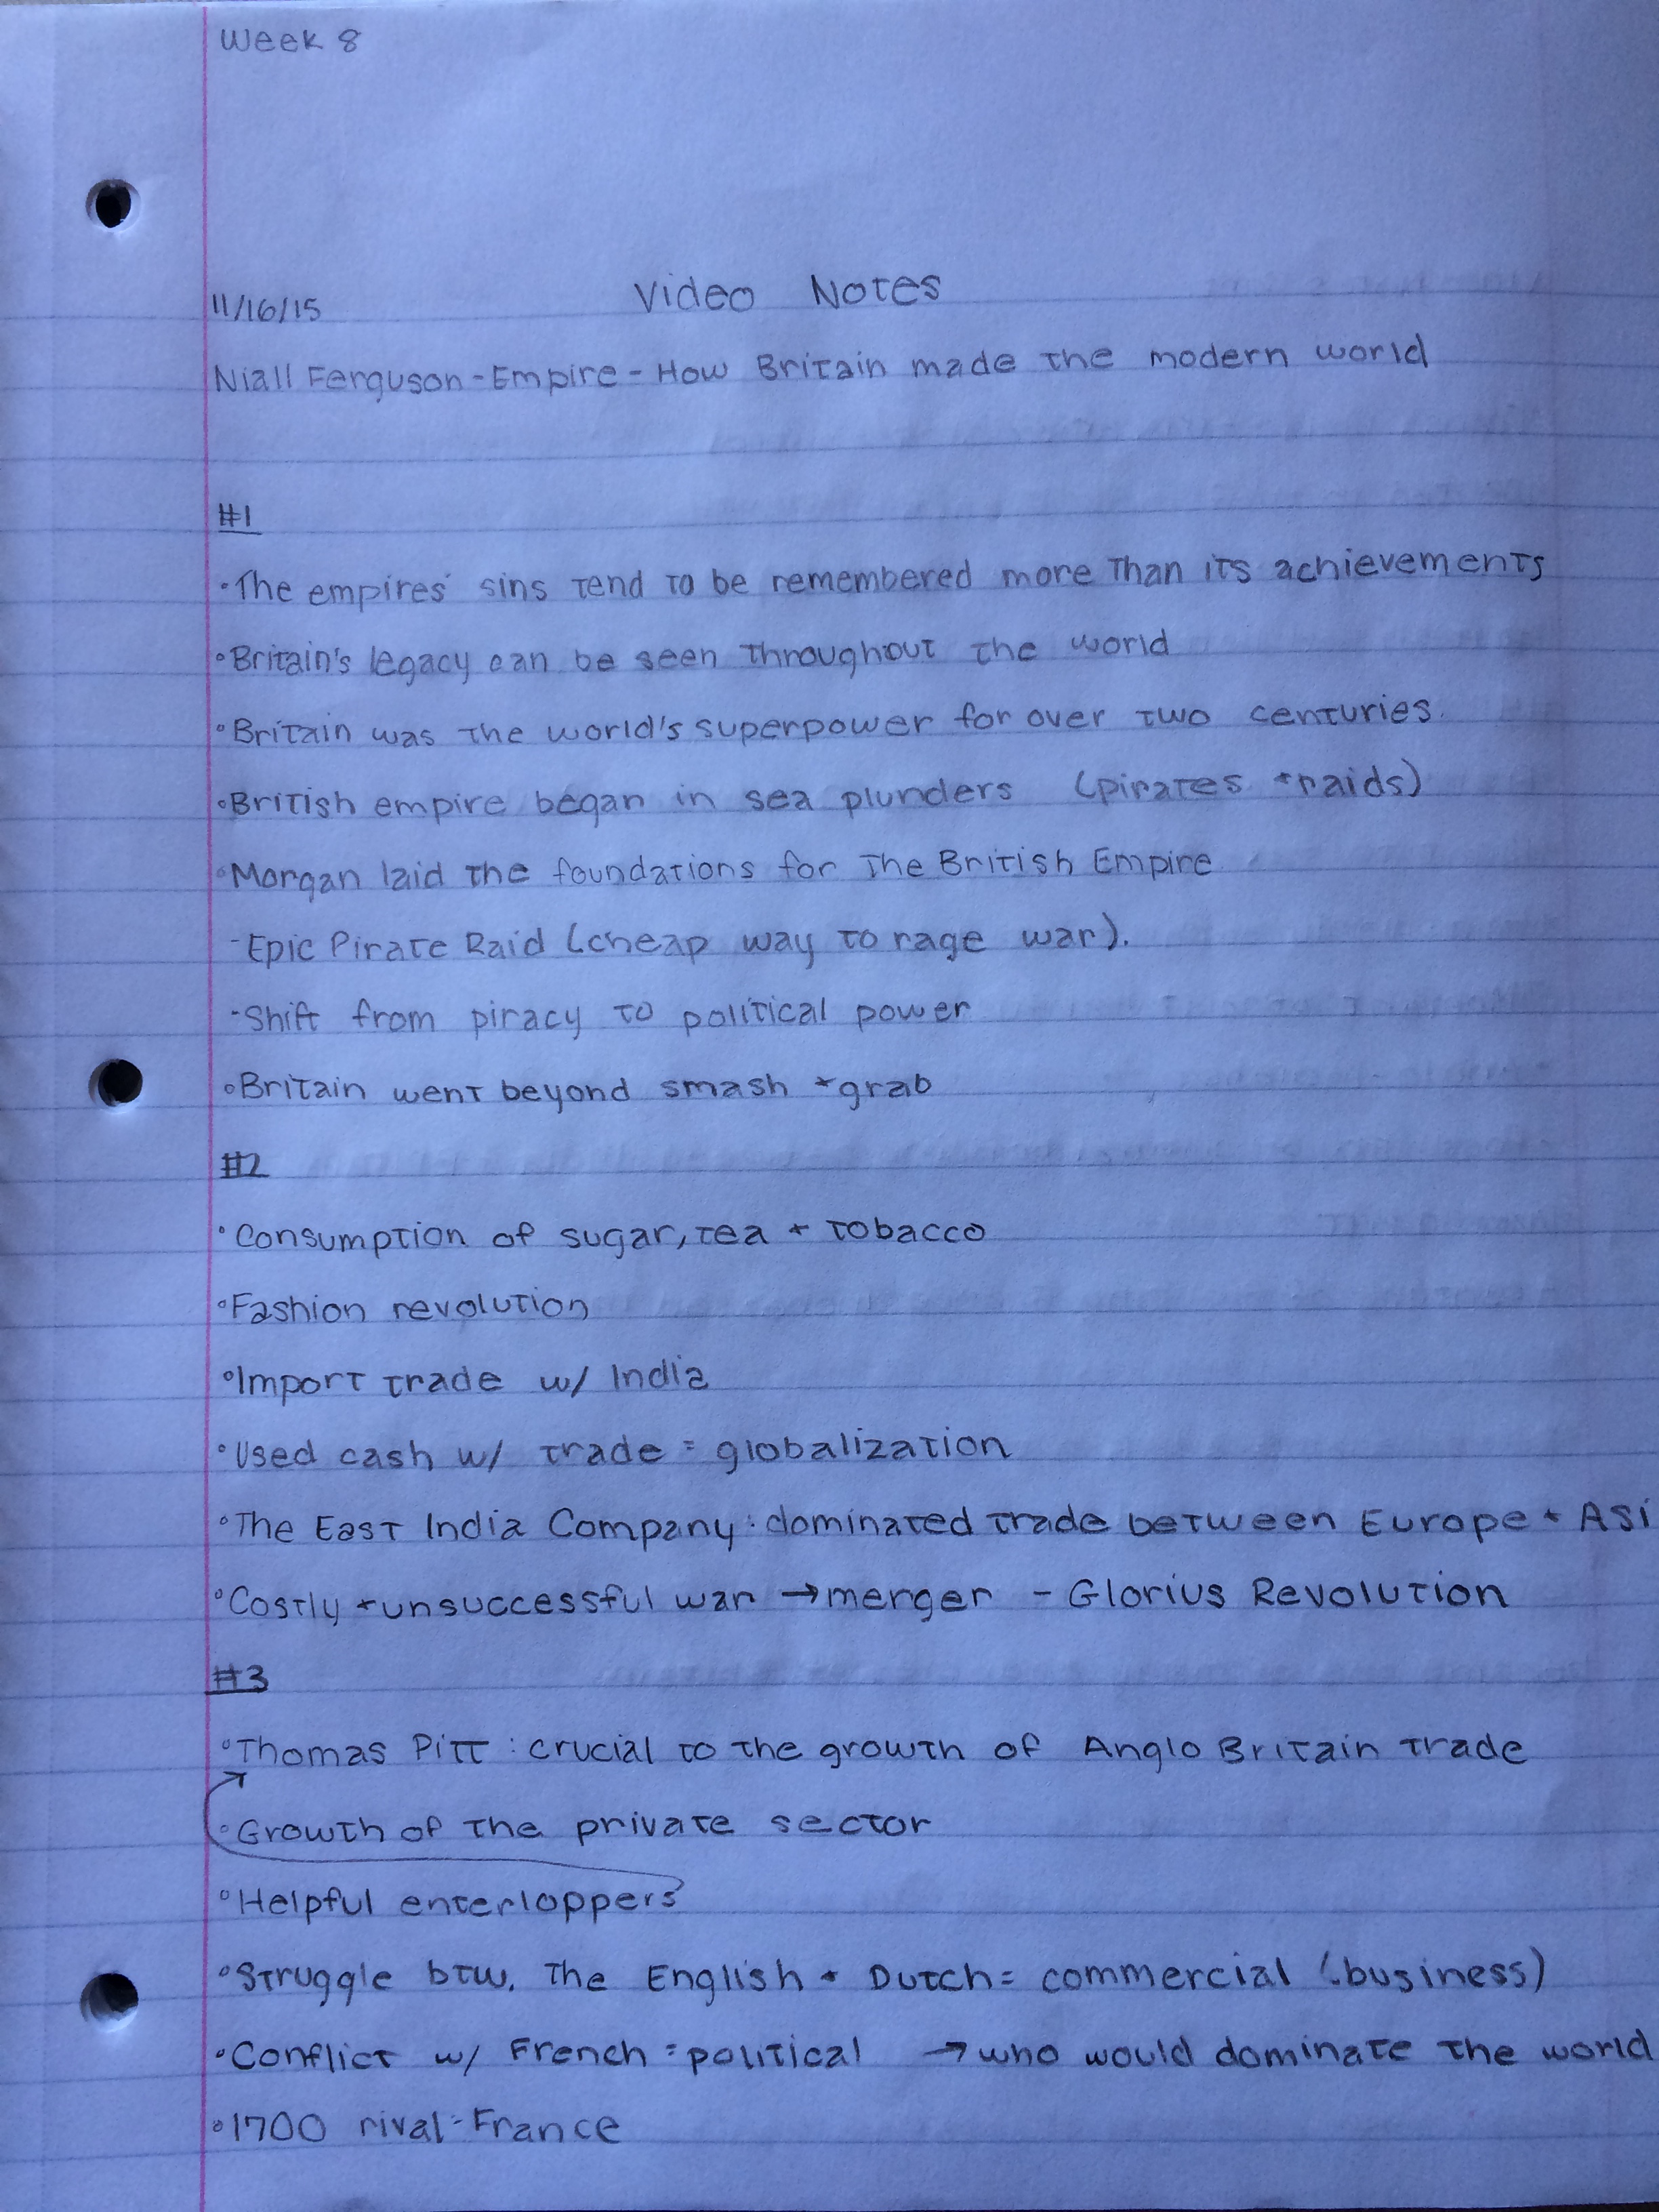 Week 8
11/16/15 Video Notes
Niall Ferguson - Empire - How Britain made the modern world
#1
•The empires' sins tend to be remembered more than its achievements
•Britain's legacy can be seen throughout the world
•Britain was the world's superpower for over two centuries.
•British empire began in sea plunders (pirates + raids)
•Morgan laid the foundations for the British Empire
-Epic Pirate Raid (cheap way to rage war).
-Shift from piracy to political power
•Britain went beyond smash + grab
#2
•Consumption of sugar, tea + tobacco
•Fashion revolution
•Import trade w/ India
•Used cash w/ trade = globalization
•The East India Company: dominated trade between Europe + Asi
•Costly + unsuccessful war → merger - Glorius Revolution
#3
•Thomas Pitt: crucial to the growth of Anglo Britain trade
•Growth of the private sector
•Helpful enterloppers
•Struggle btw. the English + Dutch = commercial (business)
•Conflict w/ French = political → who would dominate the world
•1700 rival - France